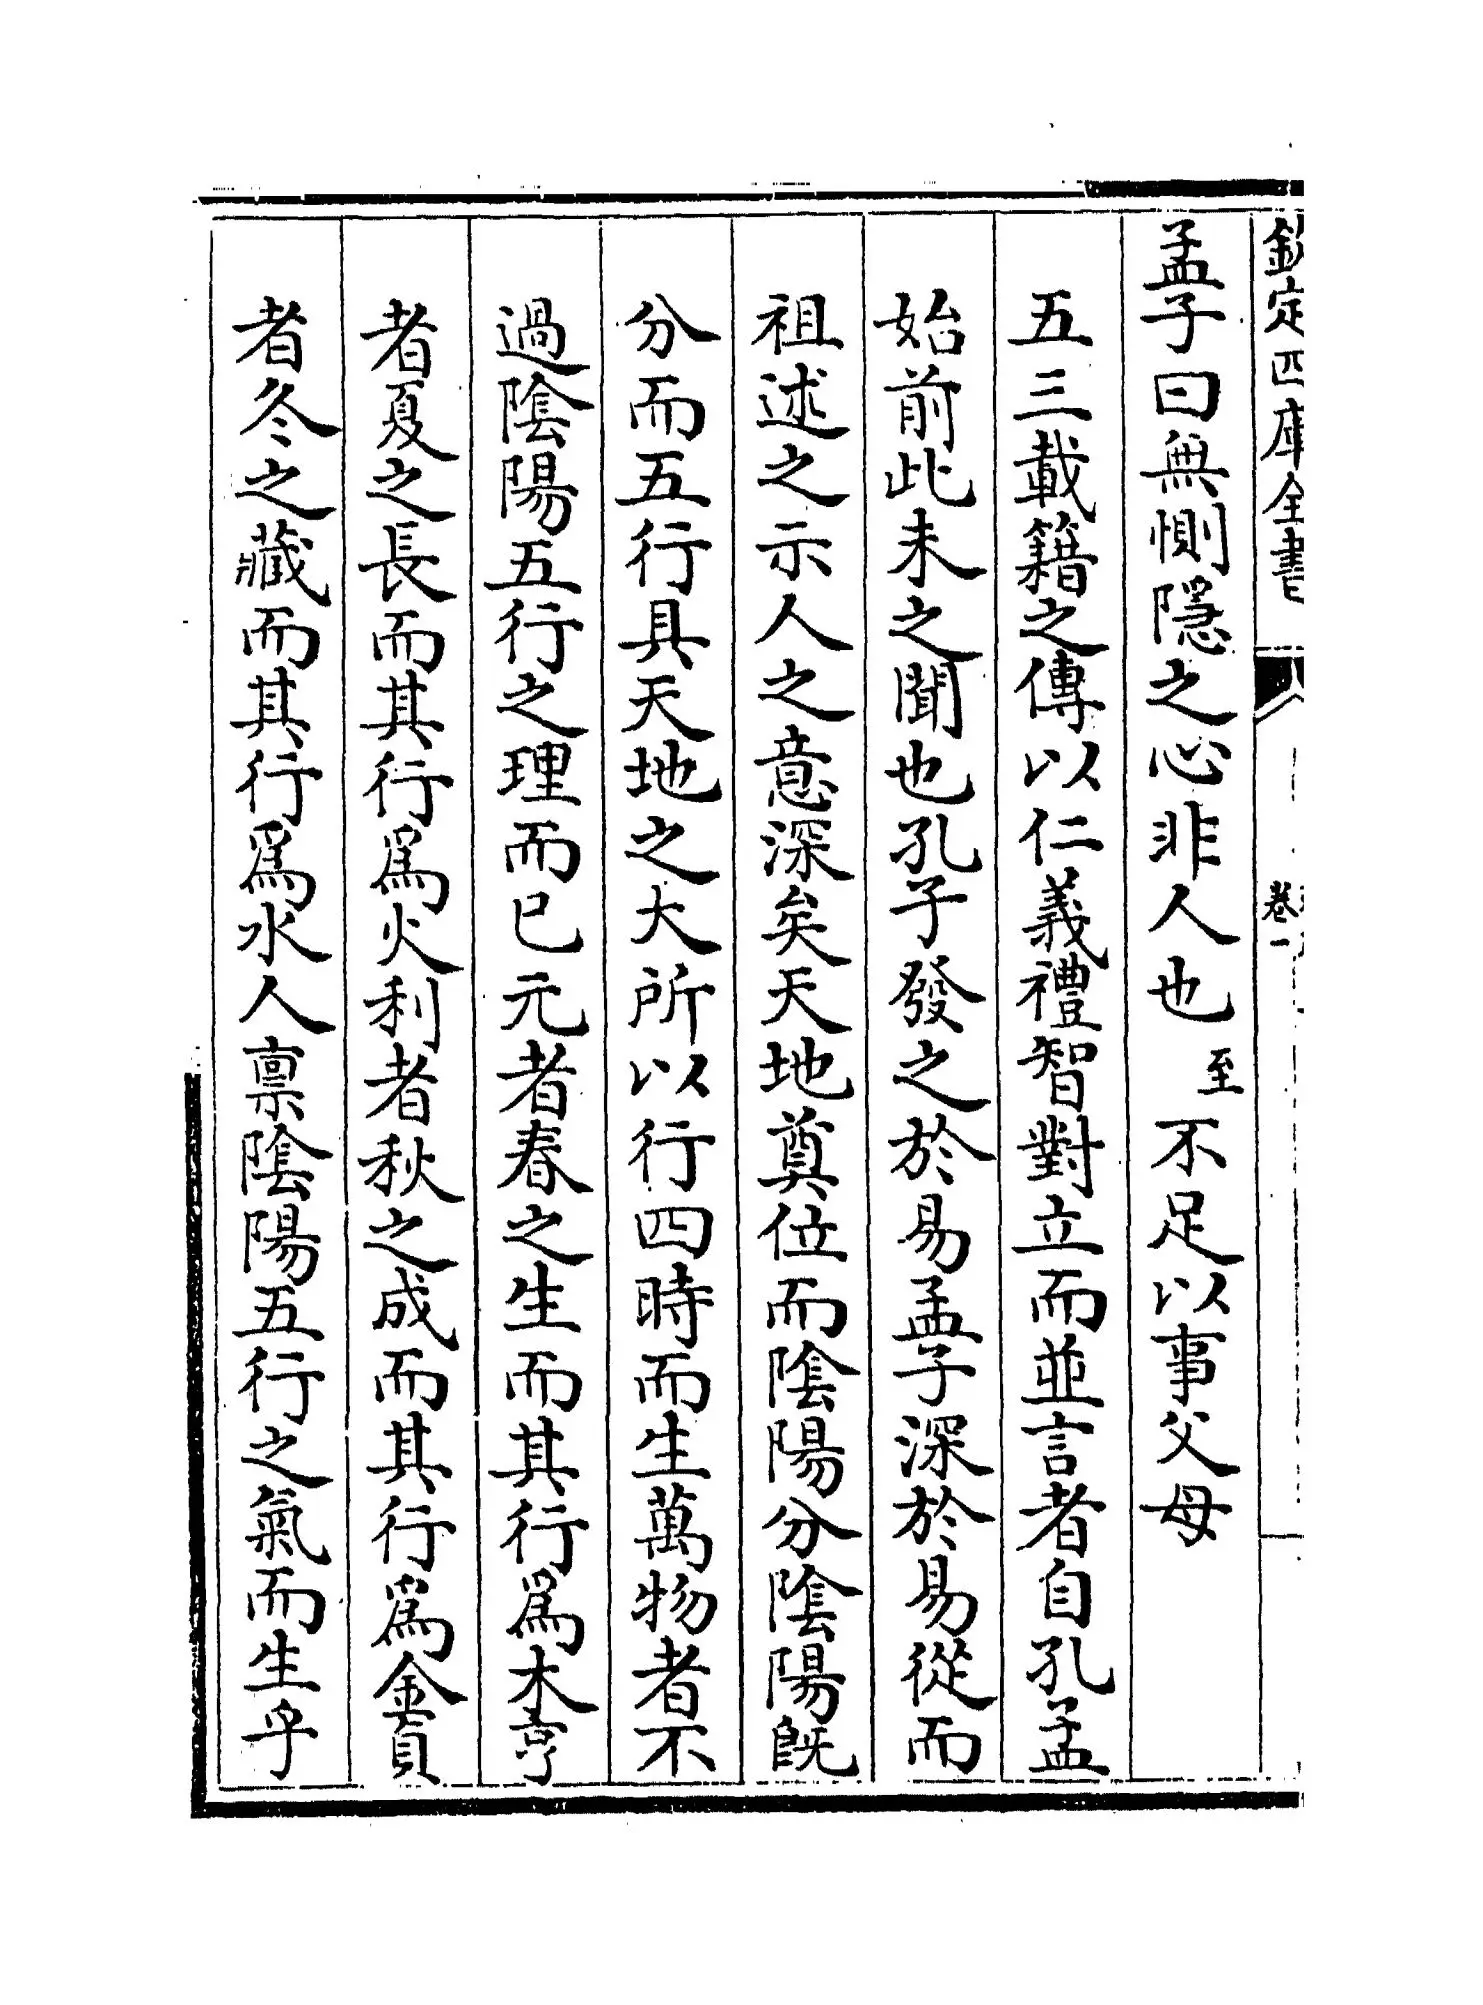 欽定四庫全書
卷一
孟子曰無惻隱之心非人也至不足以事父母
五三載籍之傳以仁義禮智對立而並言者自孔孟
始前此未之聞也孔子發之於易孟子深於易從而
祖述之示人之意深矣天地奠位而陰陽分陰陽既
分而五行具天地之大所以行四時而生萬物者不
過陰陽五行之理而已元者春之生而其行為木亨
者夏之長而其行為火利者秋之成而其行為金貞
者冬之藏而其行為水人禀陰陽五行之氣而生乎